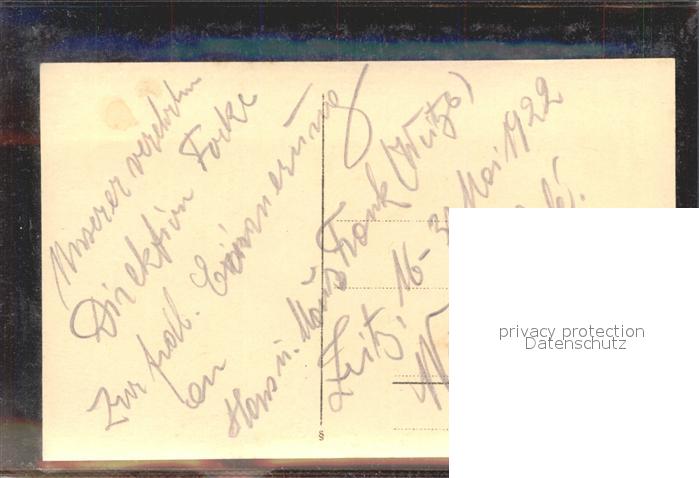 Unserer verehrten
Direktion Focke
Zur frdl. Erinnerung
an
Hans u. Frank (Weitze)
Zeitz, 16-31 Mai 1922
§
privacy protection
Datenschutz